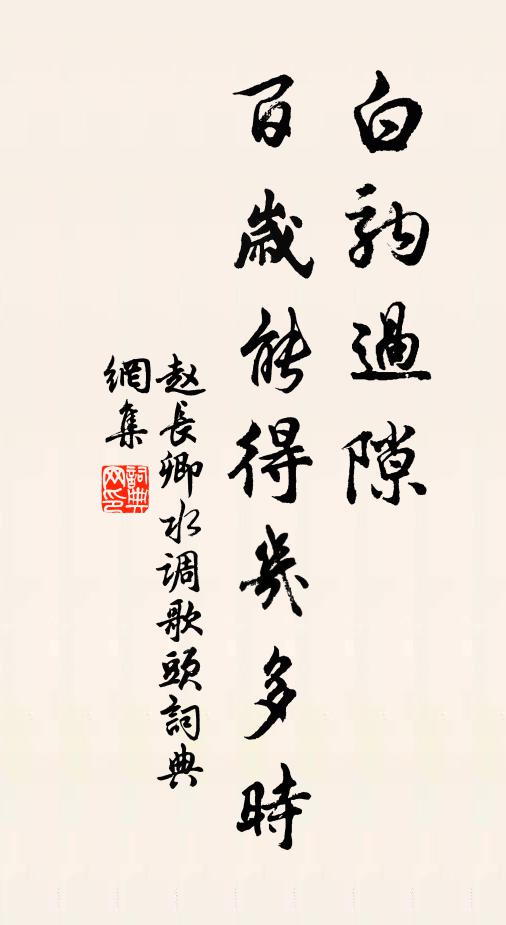 白驹過隙
百歲能得幾多時
赵長卿水调歌頭詞典
網集
詞典
网印